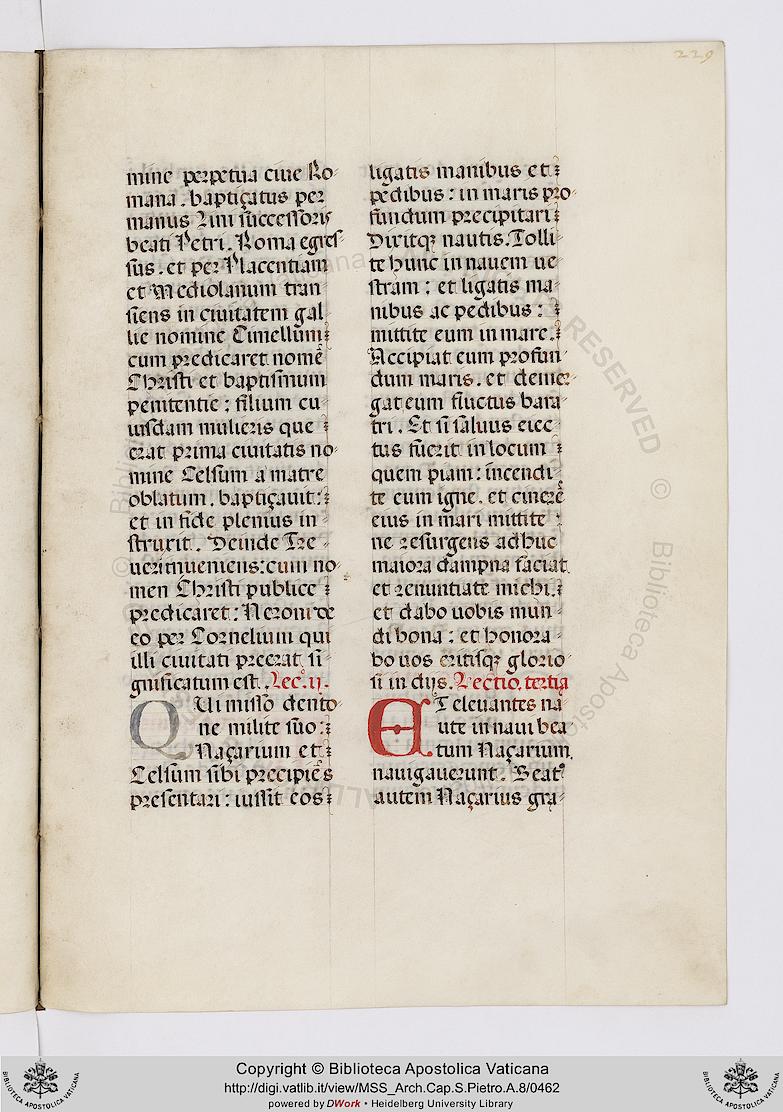 229
mine perpetua ciue Ro-
mana. baptiçatus per
manus Lini successoris
beati Petri. Roma egres-
sus. et per Placentiam
et Mediolanum tran-
siens in ciuitatem gal-
lie nomine Cimellum:
cum predicaret nomē
Christi et baptismum
penitentie: filium cu-
iusdam mulieris que
erat prima ciuitatis no-
mine Celsum a matre
oblatum. baptiçauit:
et in fide plenius in-
struxit. Deinde Tre-
ueri ueniens: cum no-
men Christi publice
predicaret: Neroni de
eo per Cornelium qui
illi ciuitati preerat si-
gnificatum est. Lec. ij.
QUi misso dento-
ne milite suo:
Naçarium et
Celsum sibi precipiēs
presentari: iussit eos
ligatis manibus et
pedibus: in maris pro-
fundum precipitari:
Dixitqz nautis. Tolli-
te hunc in nauem ue-
stram: et ligatis ma-
nibus ac pedibus:
mittite eum in mare.
Accipiat eum profun-
dum maris. et demer-
gat eum fluctus bara-
tri. Et si saluus eiec-
tus fuerit in locum
quem piam: incendi-
te eum igne. et cinerē
eius in mari mittite:
ne resurgens adhuc
maiora dampna faciat.
et renuntiate michi.
et dabo uobis mun-
di bona: et honora-
bo uos eritisqz glorio-
si in dijs. Lectio. tertia
ET eleuantes na-
ute in naui bea-
tum Naçarium.
nauigauerunt. Beatꝰ
autem Naçarius gra-
BIBLIOTECA APOSTOLICA VATICANA
Copyright © Biblioteca Apostolica Vaticana
http://digi.vatlib.it/view/MSS_Arch.Cap.S.Pietro.A.8/0462
powered by DWork • Heidelberg University Library
BIBLIOTECA APOSTOLICA VATICANA